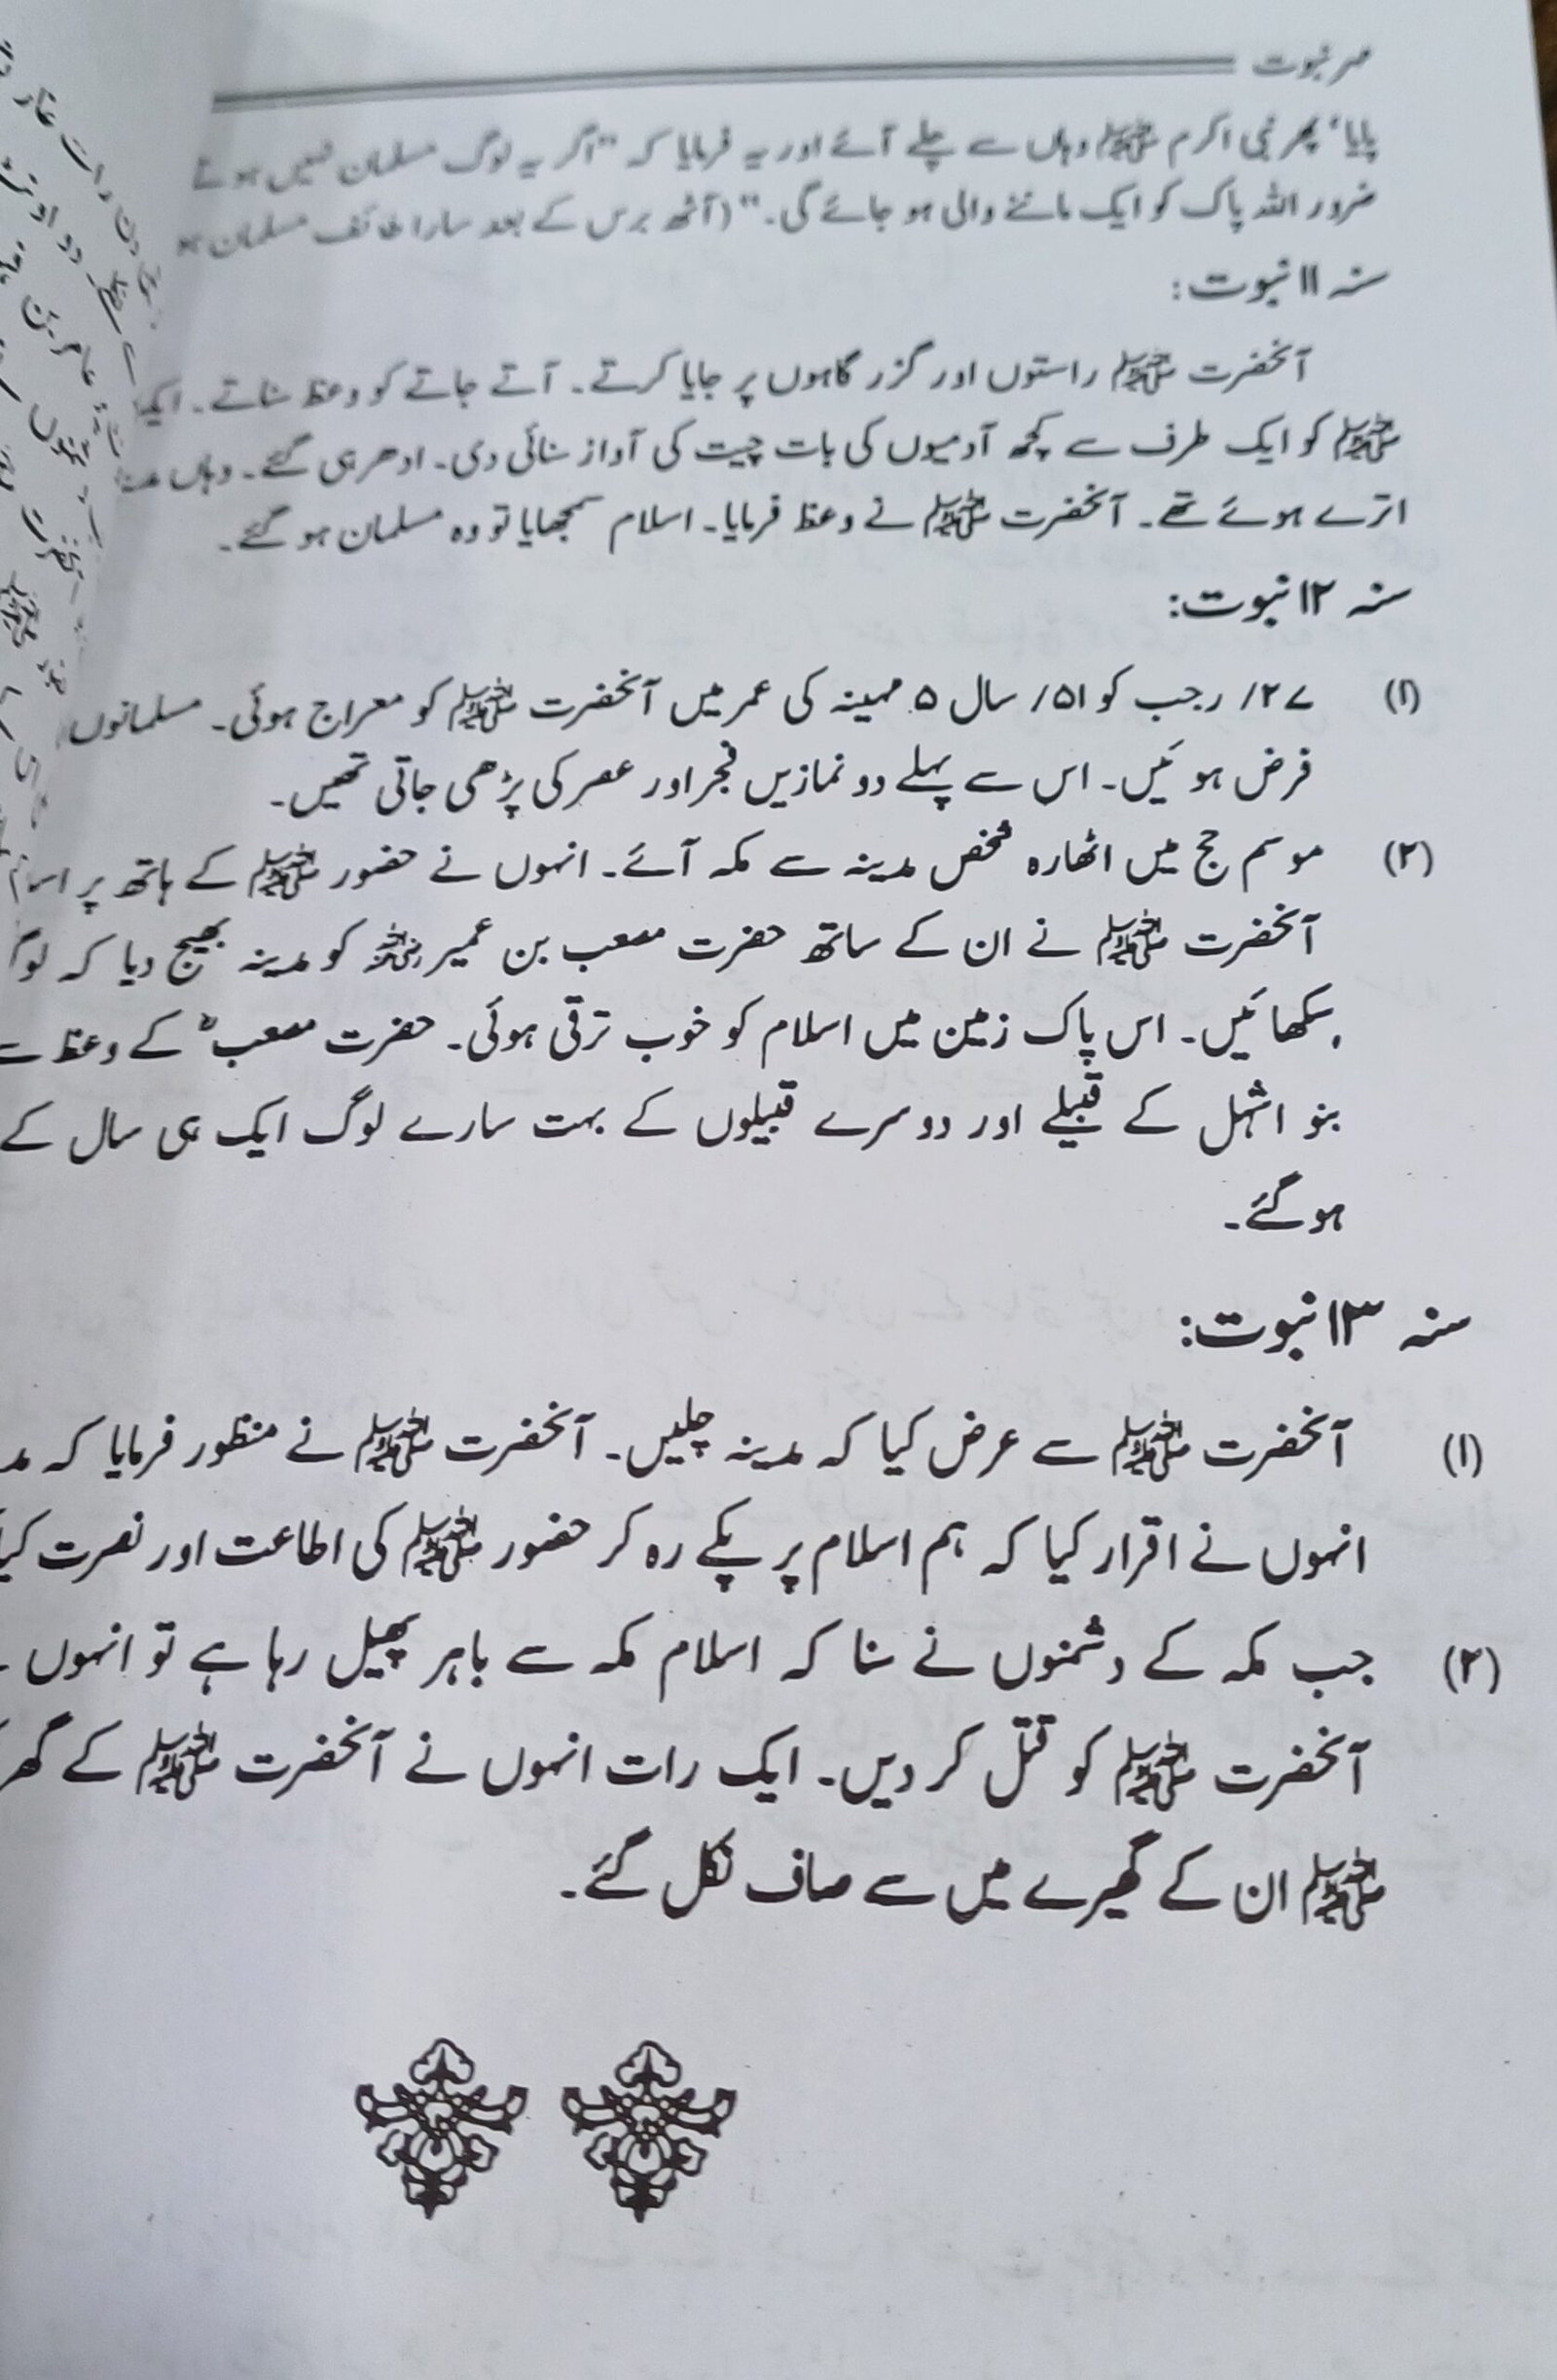 مہر نبوت
پایا‘ پھر نبی اکرم ﷺ وہاں سے چلے آئے اور یہ فرمایا کہ "اگر یہ لوگ مسلمان نہیں ہوتے
ضرور اللہ پاک کو ایک ماننے والی ہو جائے گی۔" (آٹھ برس کے بعد سارا طائف مسلمان ہو
سنہ ۱۱ نبوت:
آنحضرت ﷺ راستوں اور گزر گاہوں پر جایا کرتے۔ آتے جاتے کو وعظ سناتے۔ ایک
ﷺ کو ایک طرف سے کچھ آدمیوں کی بات چیت کی آواز سنائی دی۔ ادھر ہی گئے۔ وہاں
اترے ہوئے تھے۔ آنحضرت ﷺ نے وعظ فرمایا۔ اسلام سمجھایا تو وہ مسلمان ہو گئے۔
سنہ ۱۲ نبوت:
(۱) ۲۷/ رجب کو ۵۱/ سال ۵ مہینہ کی عمر میں آنحضرت ﷺ کو معراج ہوئی۔ مسلمانوں
فرض ہوئیں۔ اس سے پہلے دو نمازیں فجر اور عصر کی پڑھی جاتی تھیں۔
(۲) موسم حج میں اٹھارہ شخص مدینہ سے مکہ آئے۔ انہوں نے حضور ﷺ کے ہاتھ پر
آنحضرت ﷺ نے ان کے ساتھ حضرت مصعب بن عمیر رضی اللہ عنہ کو مدینہ بھیج دیا کہ
سکھائیں۔ اس پاک زمین میں اسلام کو خوب ترقی ہوئی۔ حضرت مصعبؓ کے وعظ سے
بنو اشہل کے قبیلے اور دوسرے قبیلوں کے بہت سارے لوگ ایک ہی سال کے
ہو گئے۔
سنہ ۱۳ نبوت:
(۱) آنحضرت ﷺ سے عرض کیا کہ مدینہ چلیں۔ آنحضرت ﷺ نے منظور فرمایا کہ
انہوں نے اقرار کیا کہ ہم اسلام پر پکے رہ کر حضور ﷺ کی اطاعت اور نصرت
(۲) جب مکہ کے دشمنوں نے سنا کہ اسلام مکہ سے باہر پھیل رہا ہے تو انہوں
آنحضرت ﷺ کو قتل کر دیں۔ ایک رات انہوں نے آنحضرت ﷺ کے گھر
ﷺ ان کے گھیرے میں سے صاف نکل گئے۔